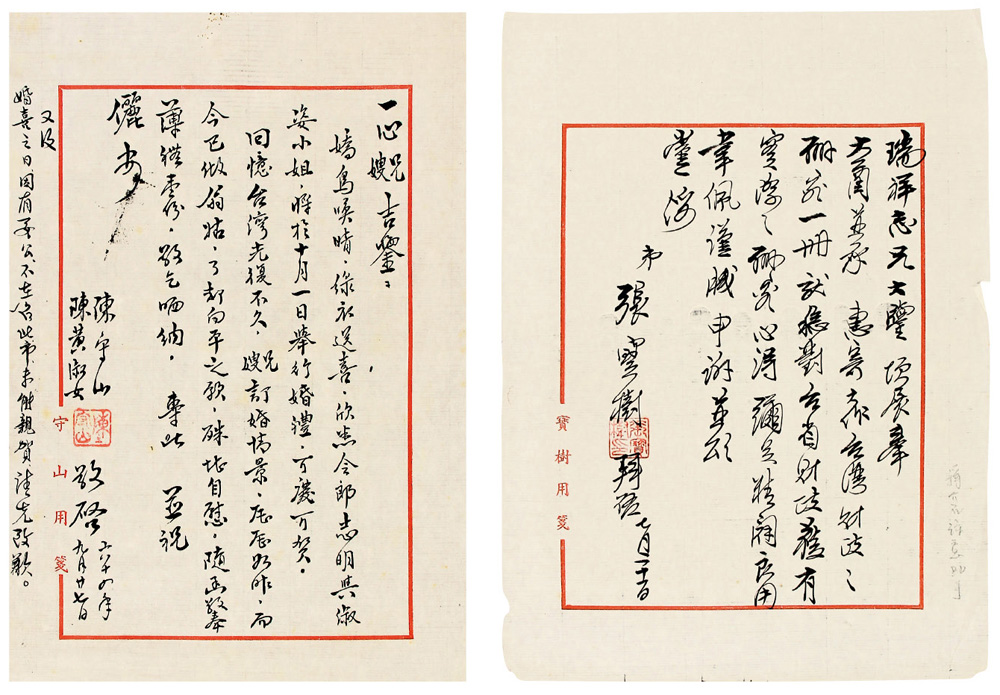 一心兄嫂吉鑒：
嬌鳥喚晴，綠衣送喜，欣悉令郎志明與淑
姿小姐，將於十月一日舉行婚禮，可慶可賀。
回憶台灣光復不久，兄嫂訂婚情景，歷歷如昨，而
今已做翁姑，了却向平之願，殊堪自慰，隨函敬奉
薄禮壹份，敬乞哂納。 專此 並祝
儷安
陳守山
陳黃淑女 敬啓 六十四年九月廿七日
又及
婚喜之日因有要公不在台北市未能親賀請先致歉。
守山用箋
瑞祥志兄大鑒 頃展奉
大函並承 惠寄 台灣財政之
一冊 對台省財政 有
實際之 心得 彌足精闢良用
韋佩謹 申謝並頌
臺綏
弟 張寶樹 拜啓 七月
寶樹用箋